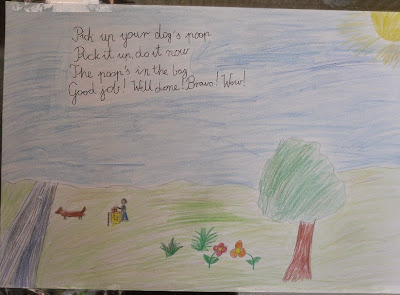 Pick up your dog's poop
Pick it up, do it now
The poop's in the bag
Good job! Well done! Bravo! Wow!